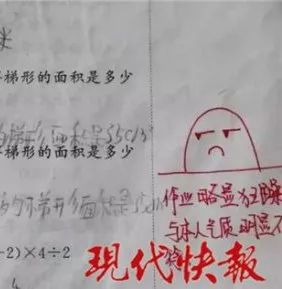 米
梯形的面积是多少
梯形面积是
梯形的面积是多少
的梯形面积是
-2)×4÷2
作业略显狂躁
与本人气质明显不
现代快報